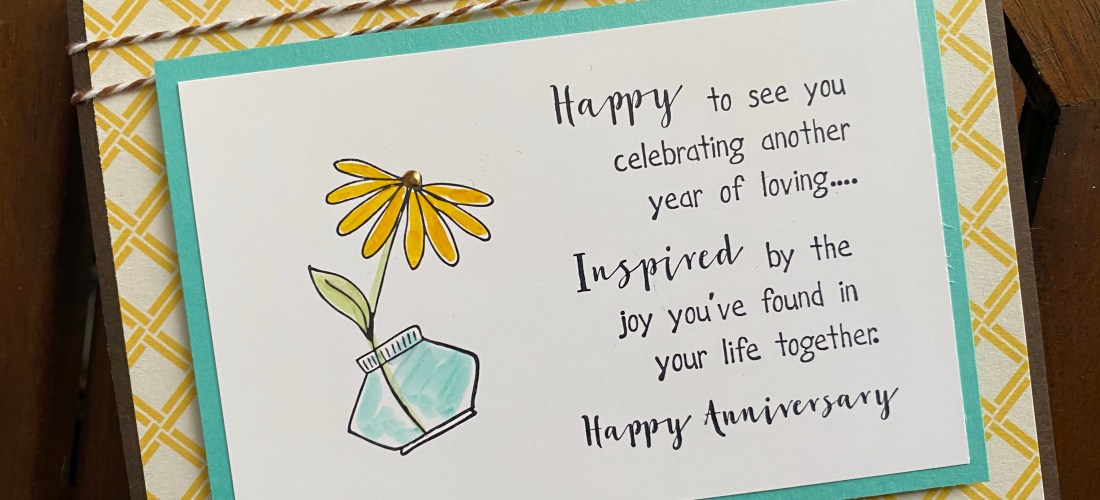 Happy to see you
celebrating another
year of loving....
Inspired by the
joy you've found in
your life together.
Happy Anniversary